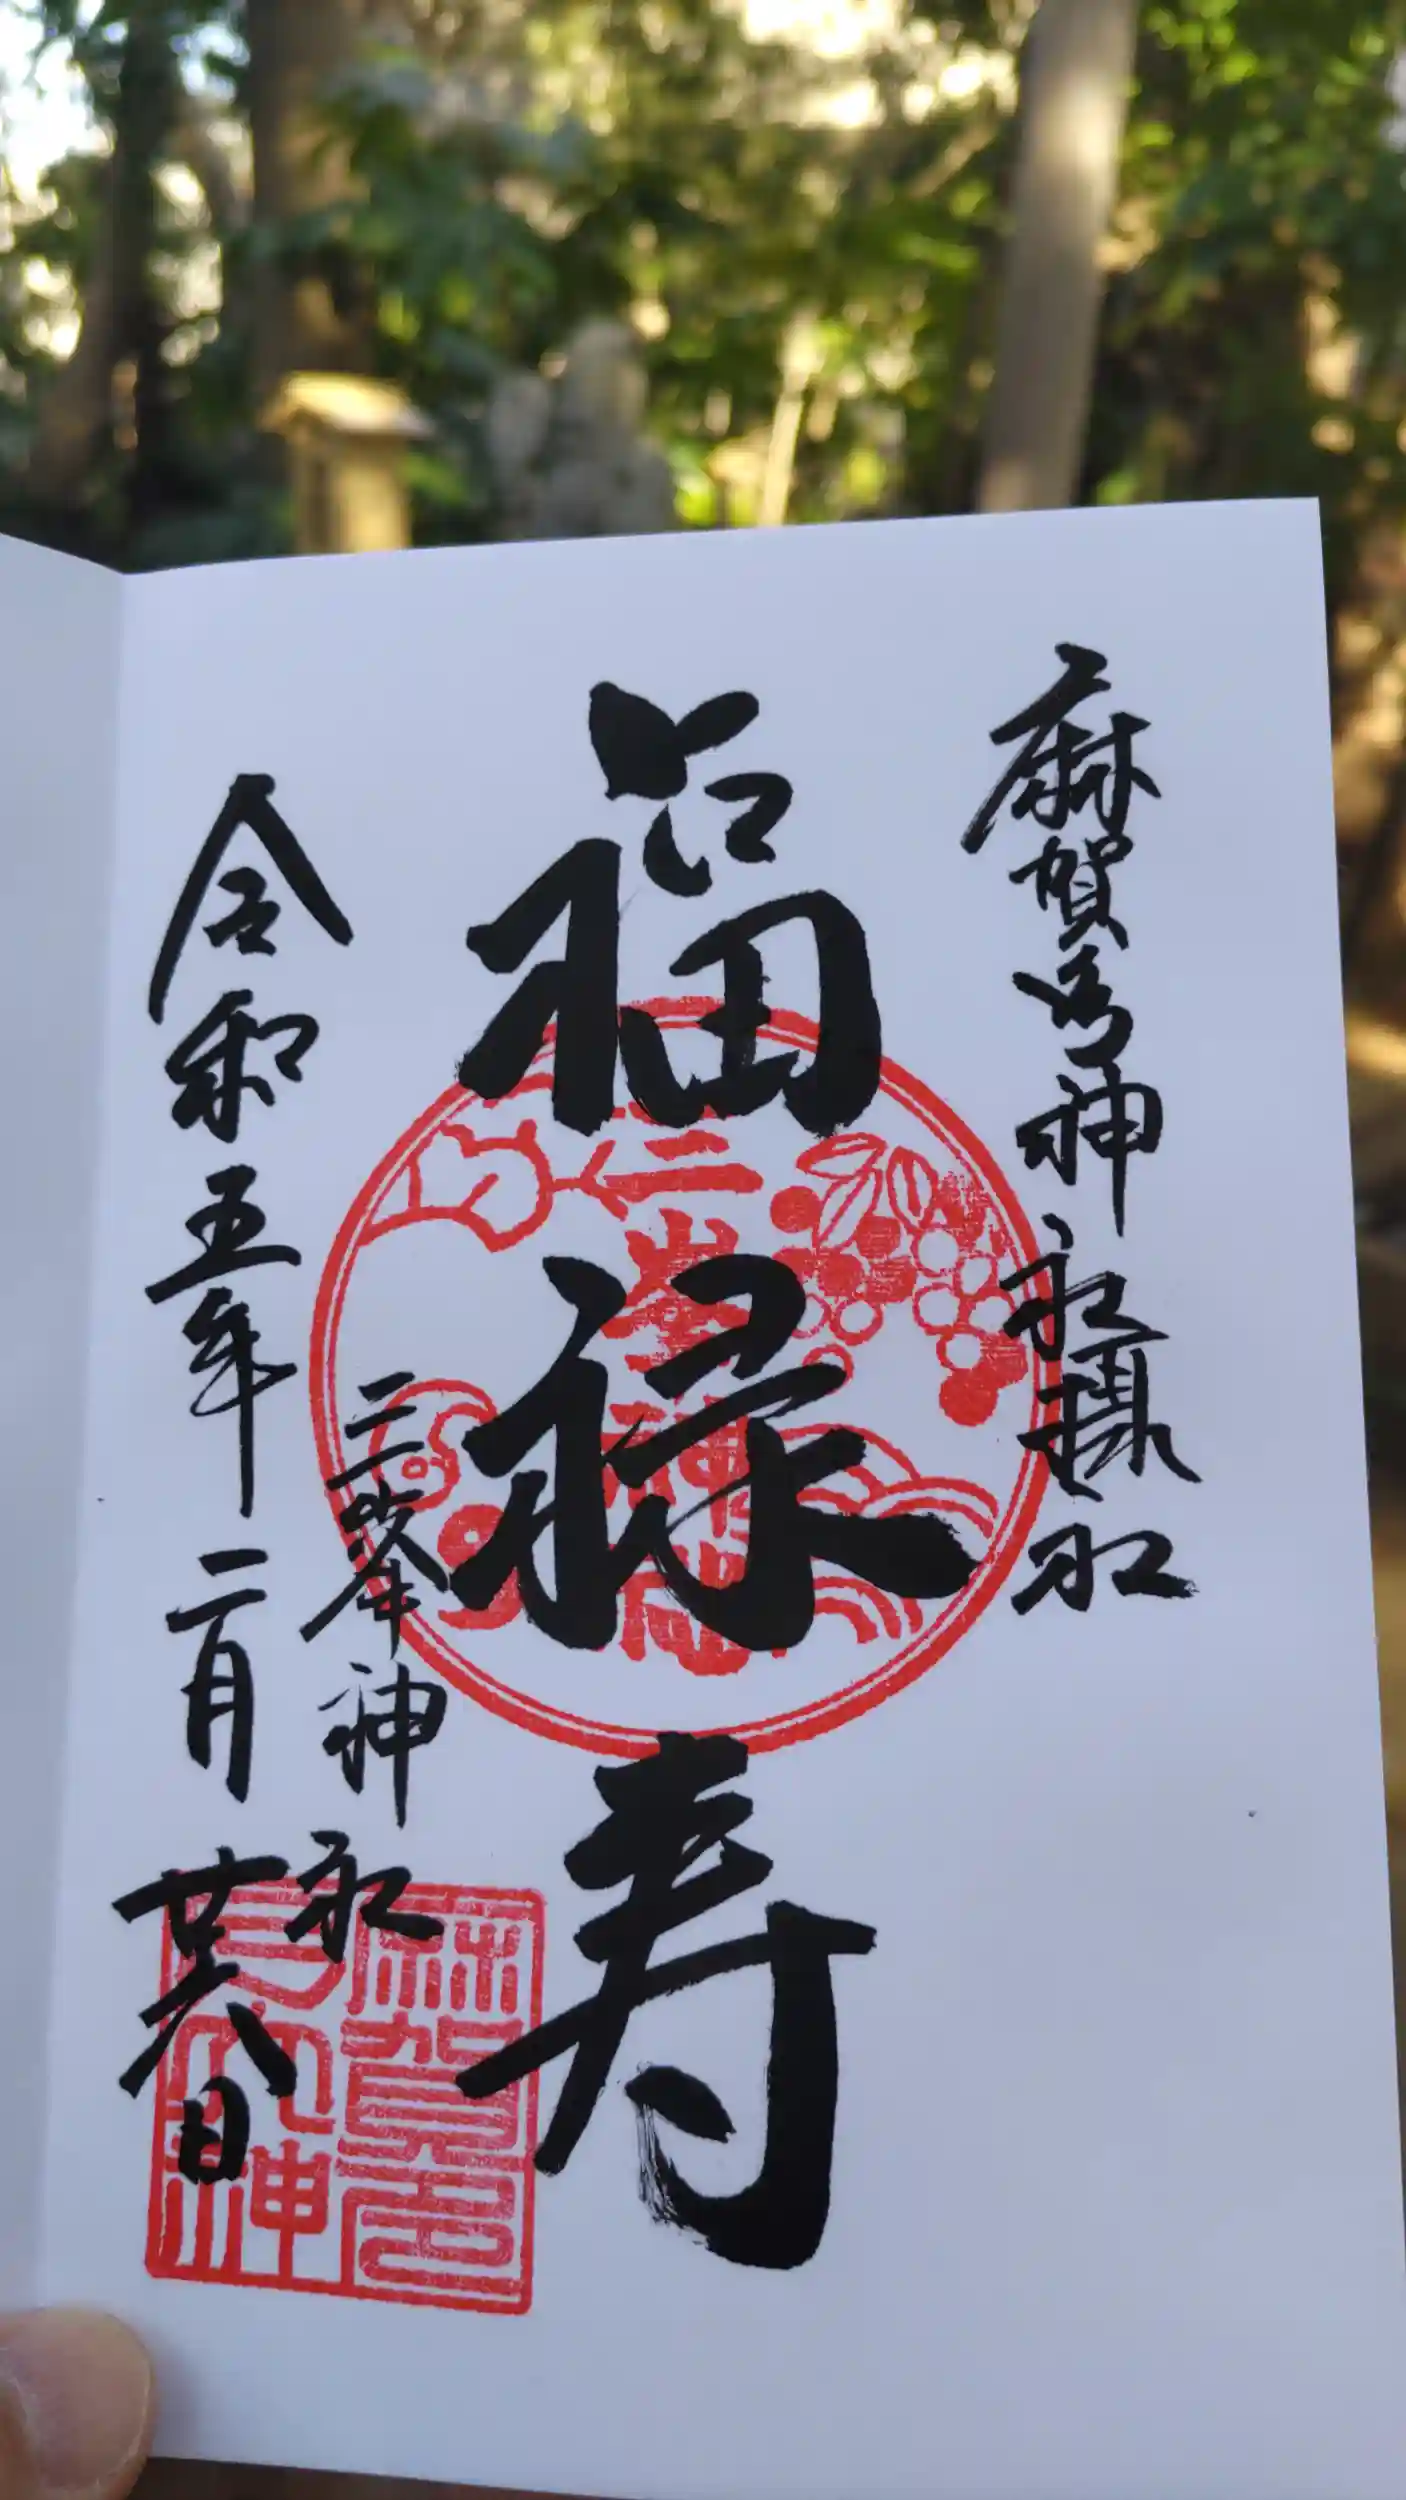 麻賀多神社攝社
福禄寿
三峯神社
三峯神社
令和五年二月廿八日